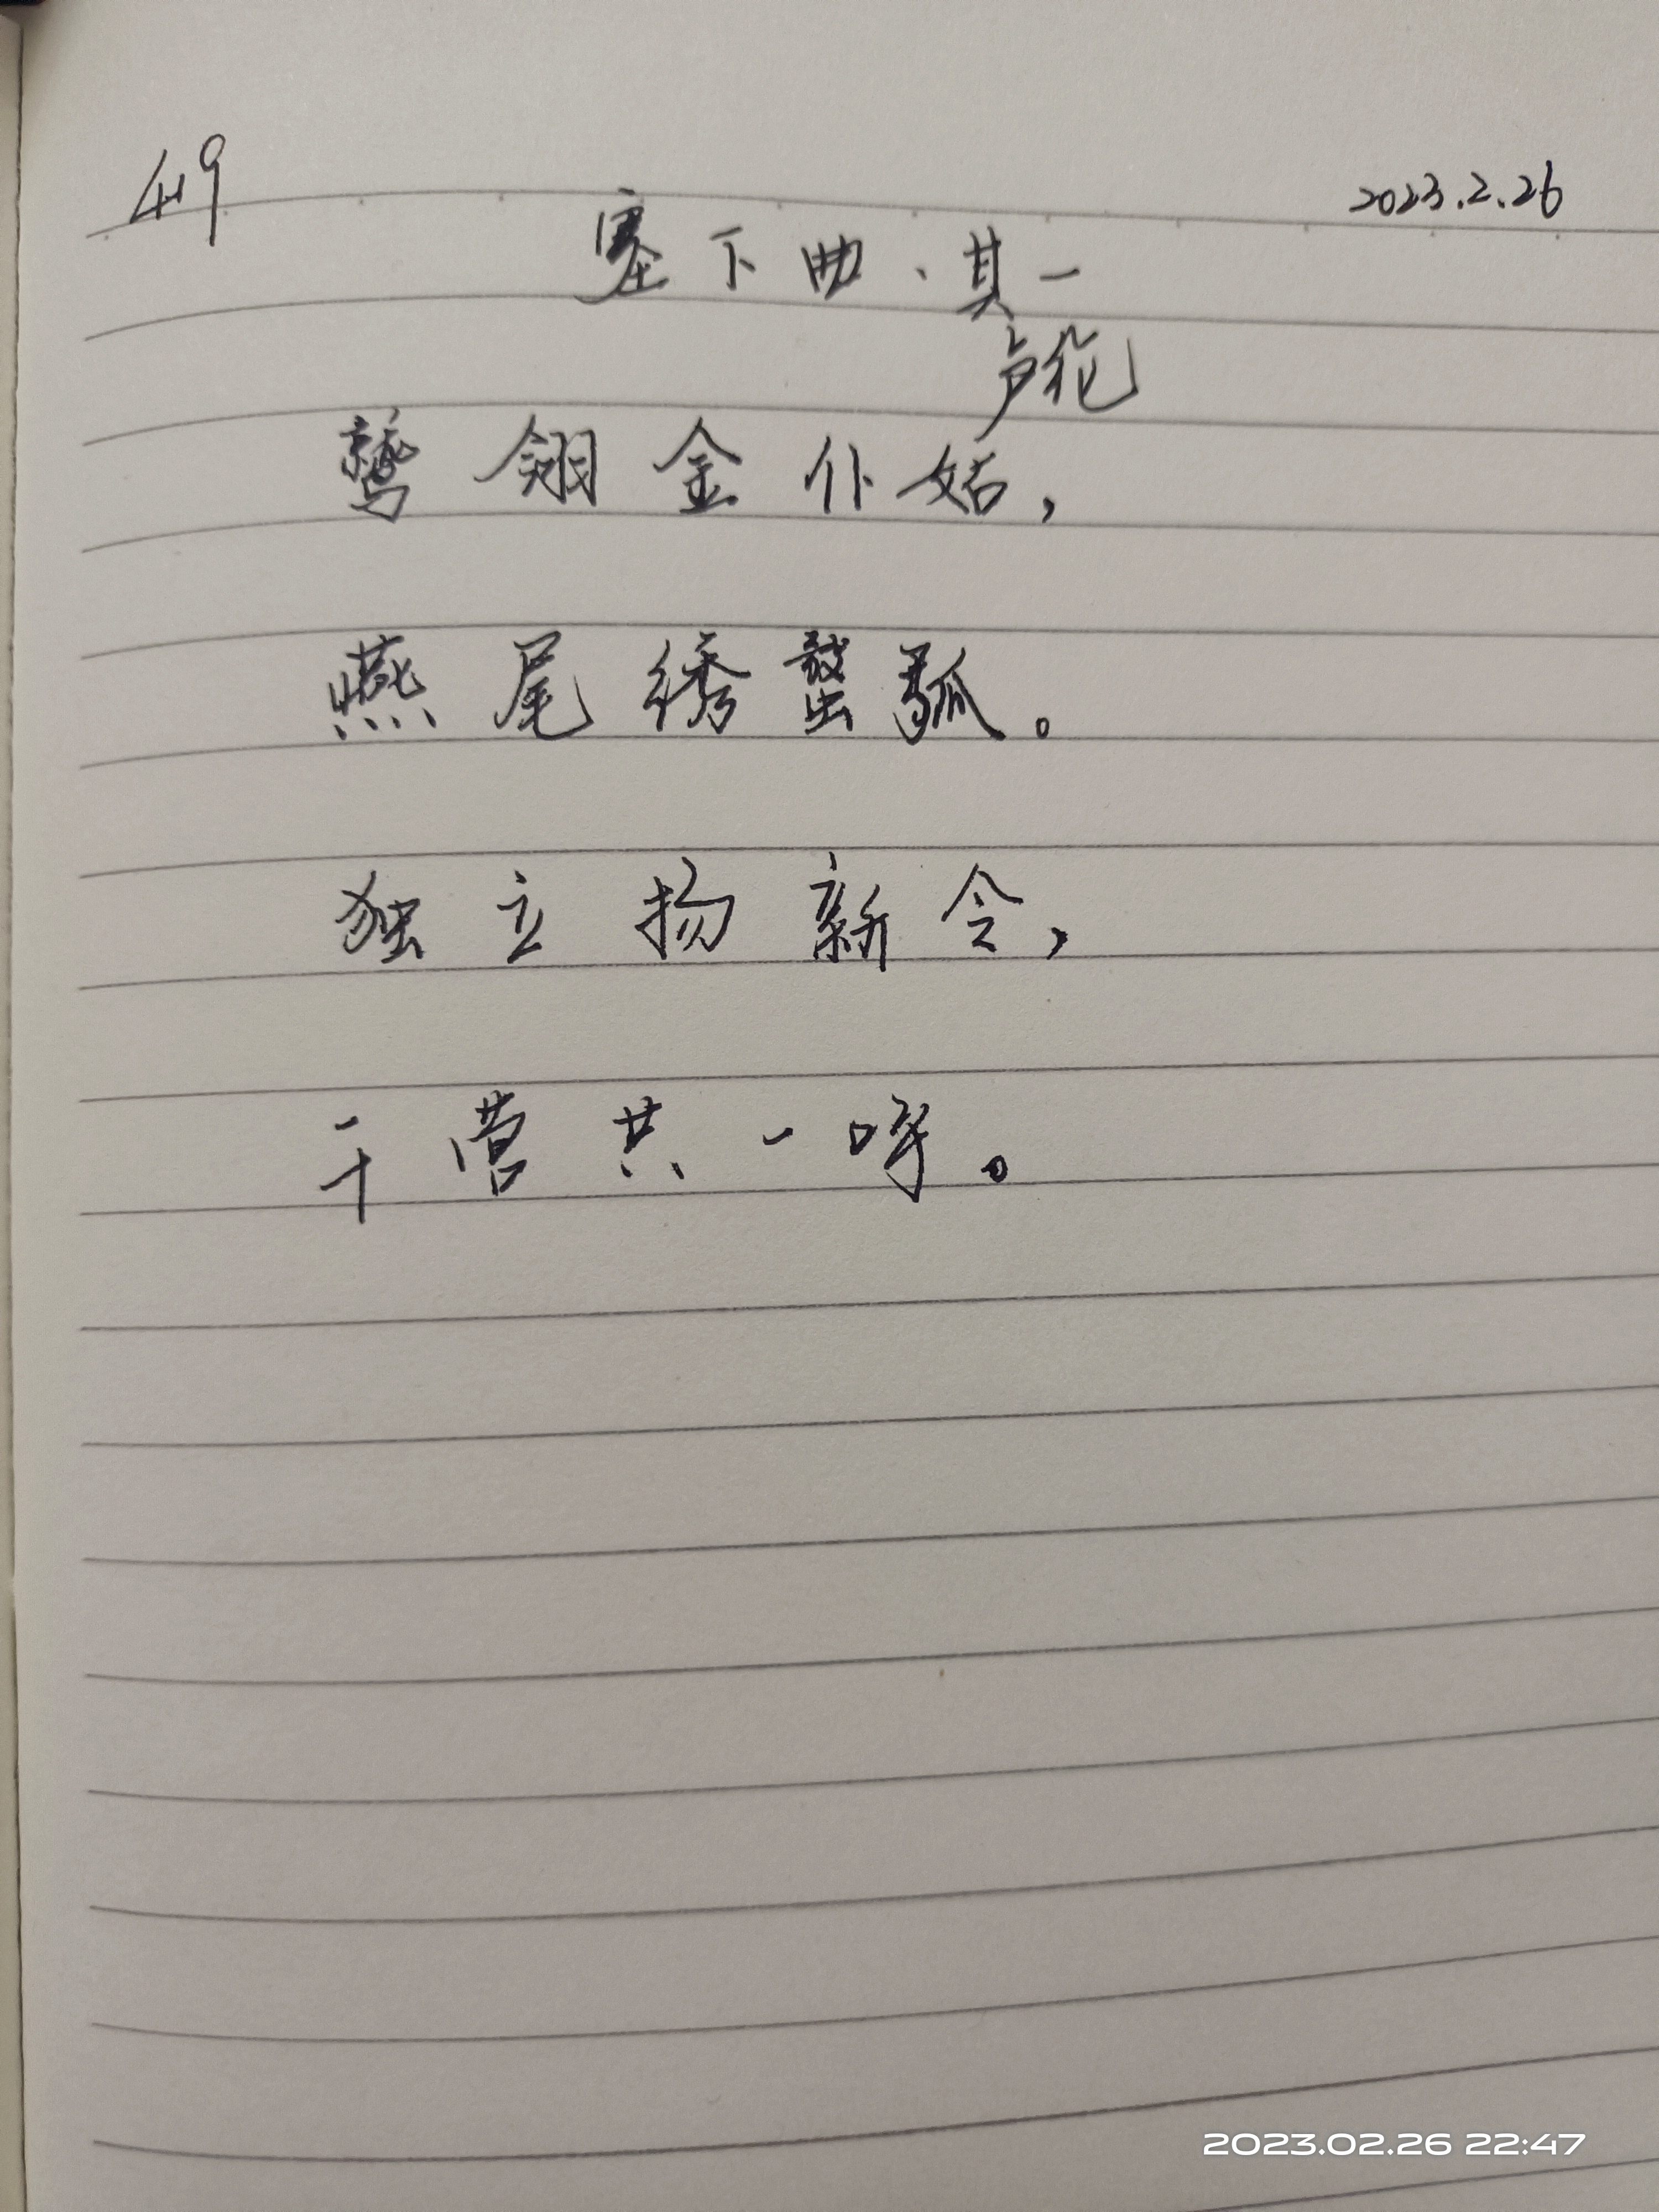 49
2023.2.26
塞下曲、其一
卢纶
鹫翎金仆姑,
燕尾绣蝥弧。
独立扬新令,
千营共一呼。
2023.02.26 22:47